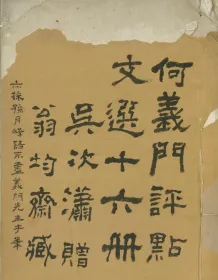 何義門評點
文選十六册
吳次瀟贈
翁均齋藏
六採孫月峰語不盡義門先生手筆